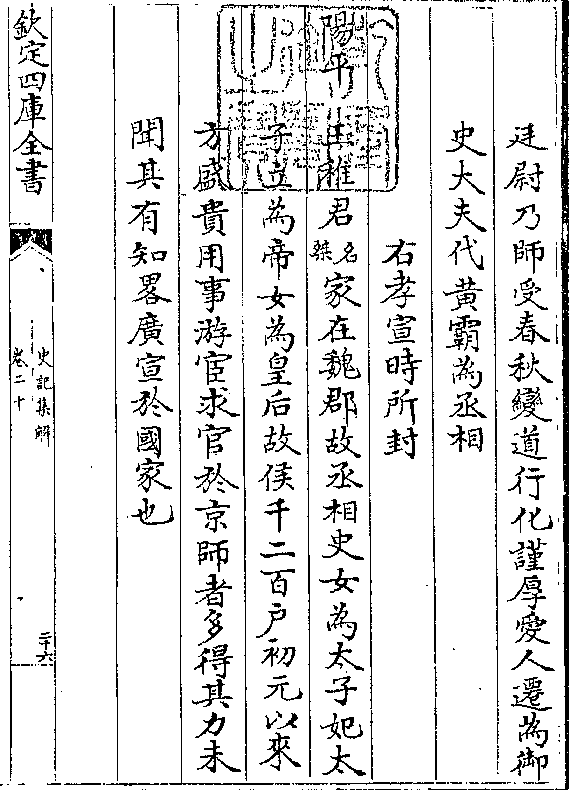 廷尉乃師受春秋變道行化謹厚愛人遷為御
史大夫代黃霸為丞相
右孝宣時所封
陽平 王稚君名桀家在魏郡故丞相史女為太子妃太
子立為帝女為皇后故侯千二百户初元以來
方盛貴用事游宦求官於京師者多得其力未
聞其有知畧廣宣於國家也
欽定四庫全書
史記集解
卷二十
二十六